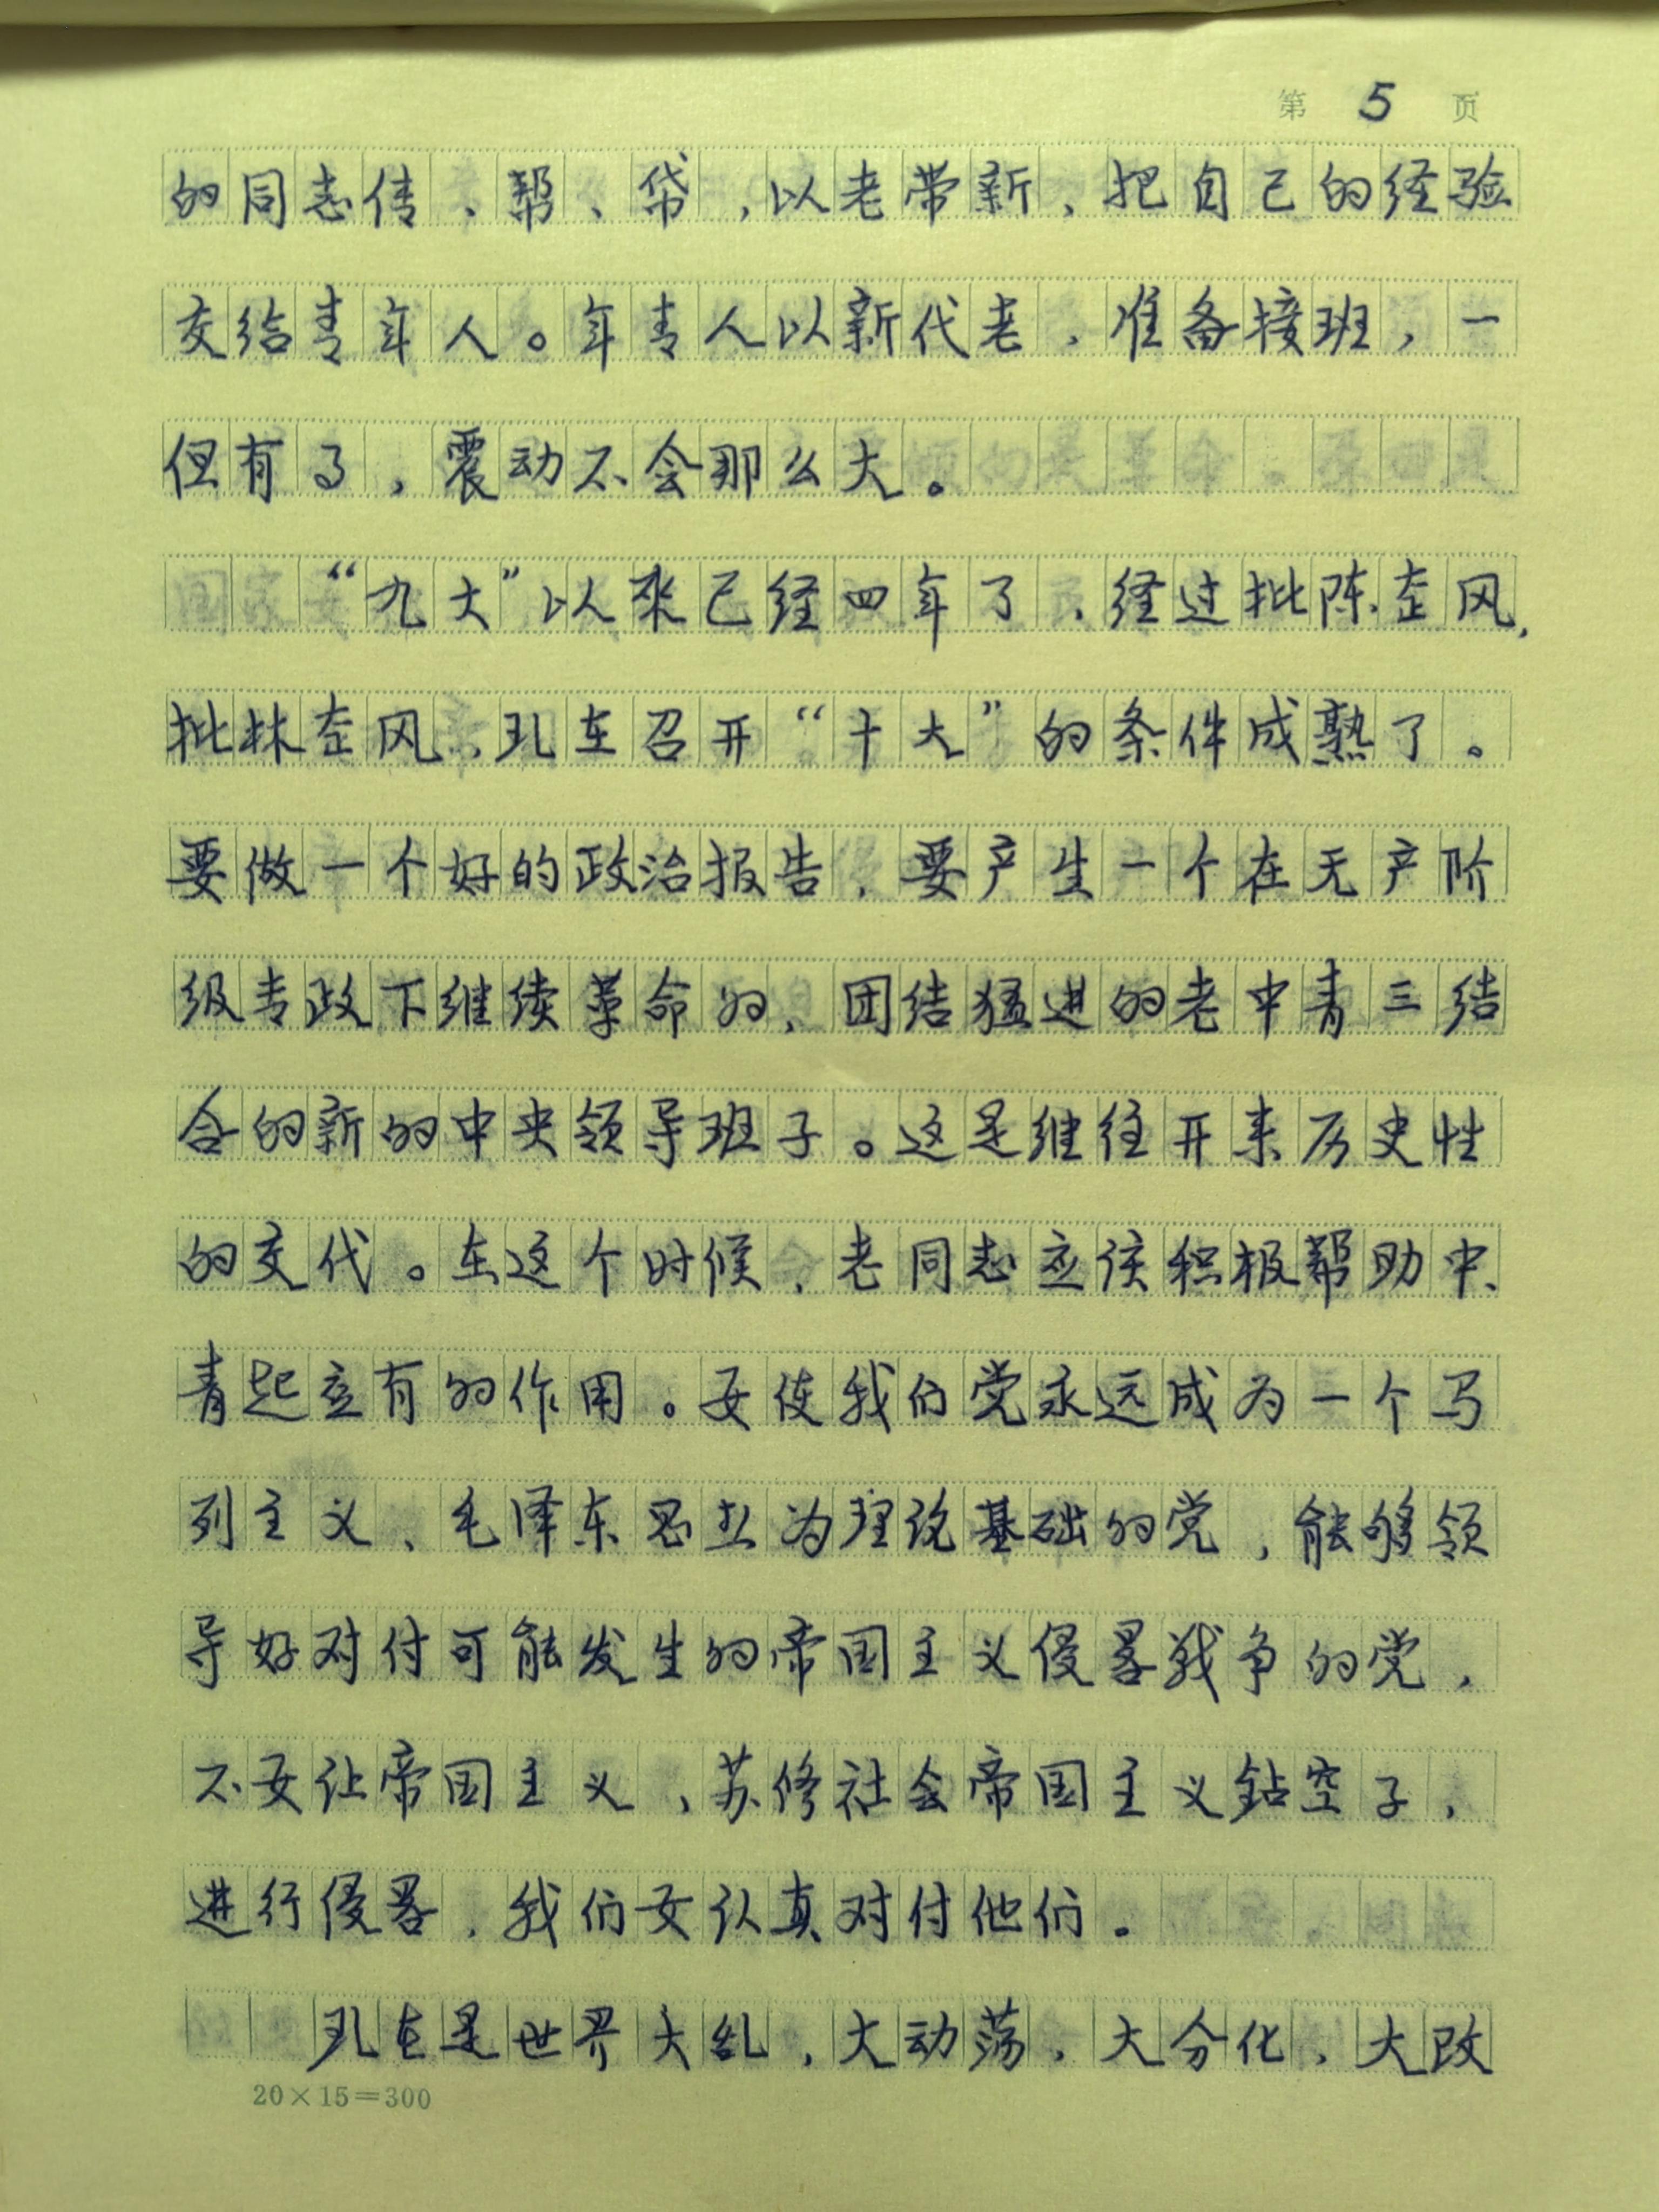 第 5 页
的同志传、帮、帒，以老带新，把自己的经验
交给青年人。年青人以新代老，准备接班，一
但有了，震动不会那么大。
“九大”以来已经四年了，经过批陈整风，
批林整风，现在召开“十大”的条件成熟了。
要做一个好的政治报告，要产生一个在无产阶
级专政下继续革命的，团结猛进的老中青三结
合的新的中央领导班子。这是继往开来历史性
的交代。在这个时候，老同志应该积极帮助中、
青起应有的作用。要使我们党永远成为一个马
列主义、毛泽东思想为理论基础的党，能够领
导好对付可能发生的帝国主义侵畧战争的党，
不要让帝国主义，苏修社会帝国主义钻空子，
进行侵畧，我们要认真对付他们。
现在是世界大乱，大动荡，大分化，大改
20×15=300